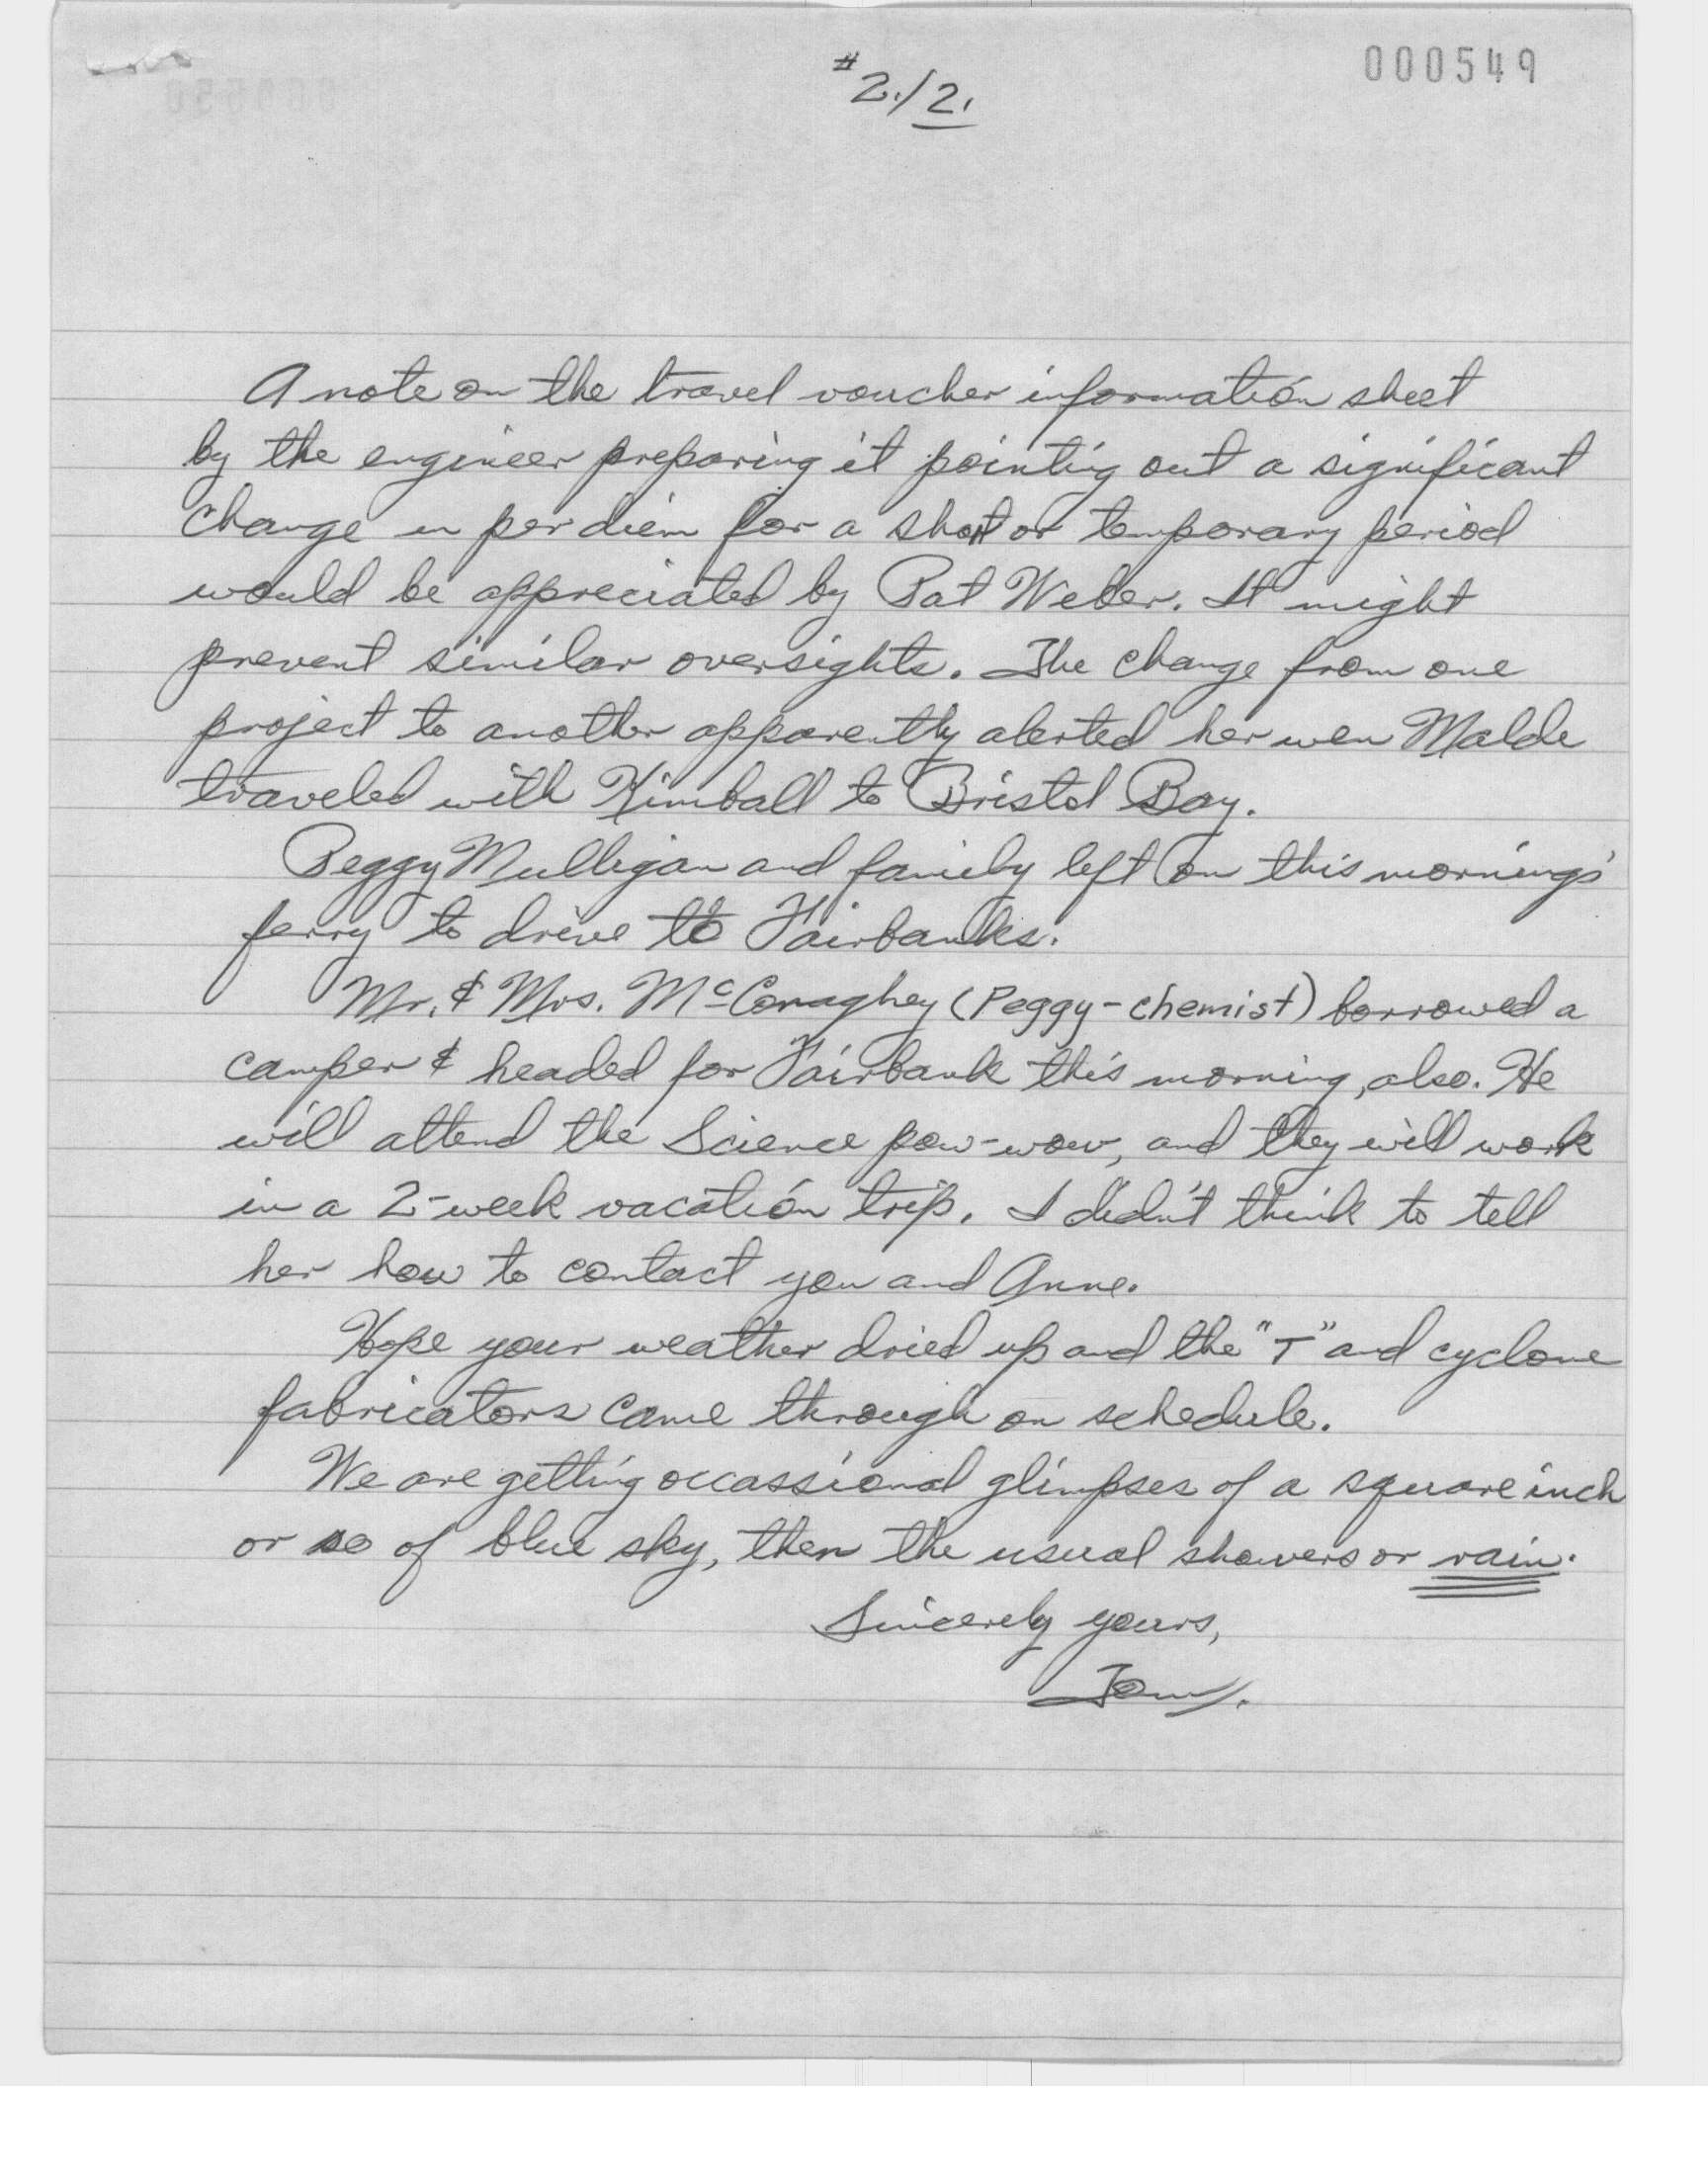 000549
#2./2.
A note on the travel voucher information sheet
by the engineer preparing it pointing out a significant
change in per diem for a short or temporary period
would be appreciated by Pat Weber. It might
prevent similar oversights. The change from one
project to another apparently alerted her wen Malde
traveled with Kimball to Bristol Bay.
Peggy Mulligan and family left on this mornings'
ferry to drive to Fairbanks.
Mr. & Mrs. McConaghey (Peggy-chemist) borrowed a
camper & headed for Fairbank this morning, also. He
will attend the Science pow-wow, and they will work
in a 2-week vacation trip. I didn't think to tell
her how to contact you and Anne.
Hope your weather dried up and the "T" and cyclone
fabricators came through on schedule.
We are getting occassional glimpses of a square inch
or so of blue sky, then the usual showers or rain.
Sincerely yours,
Tom.